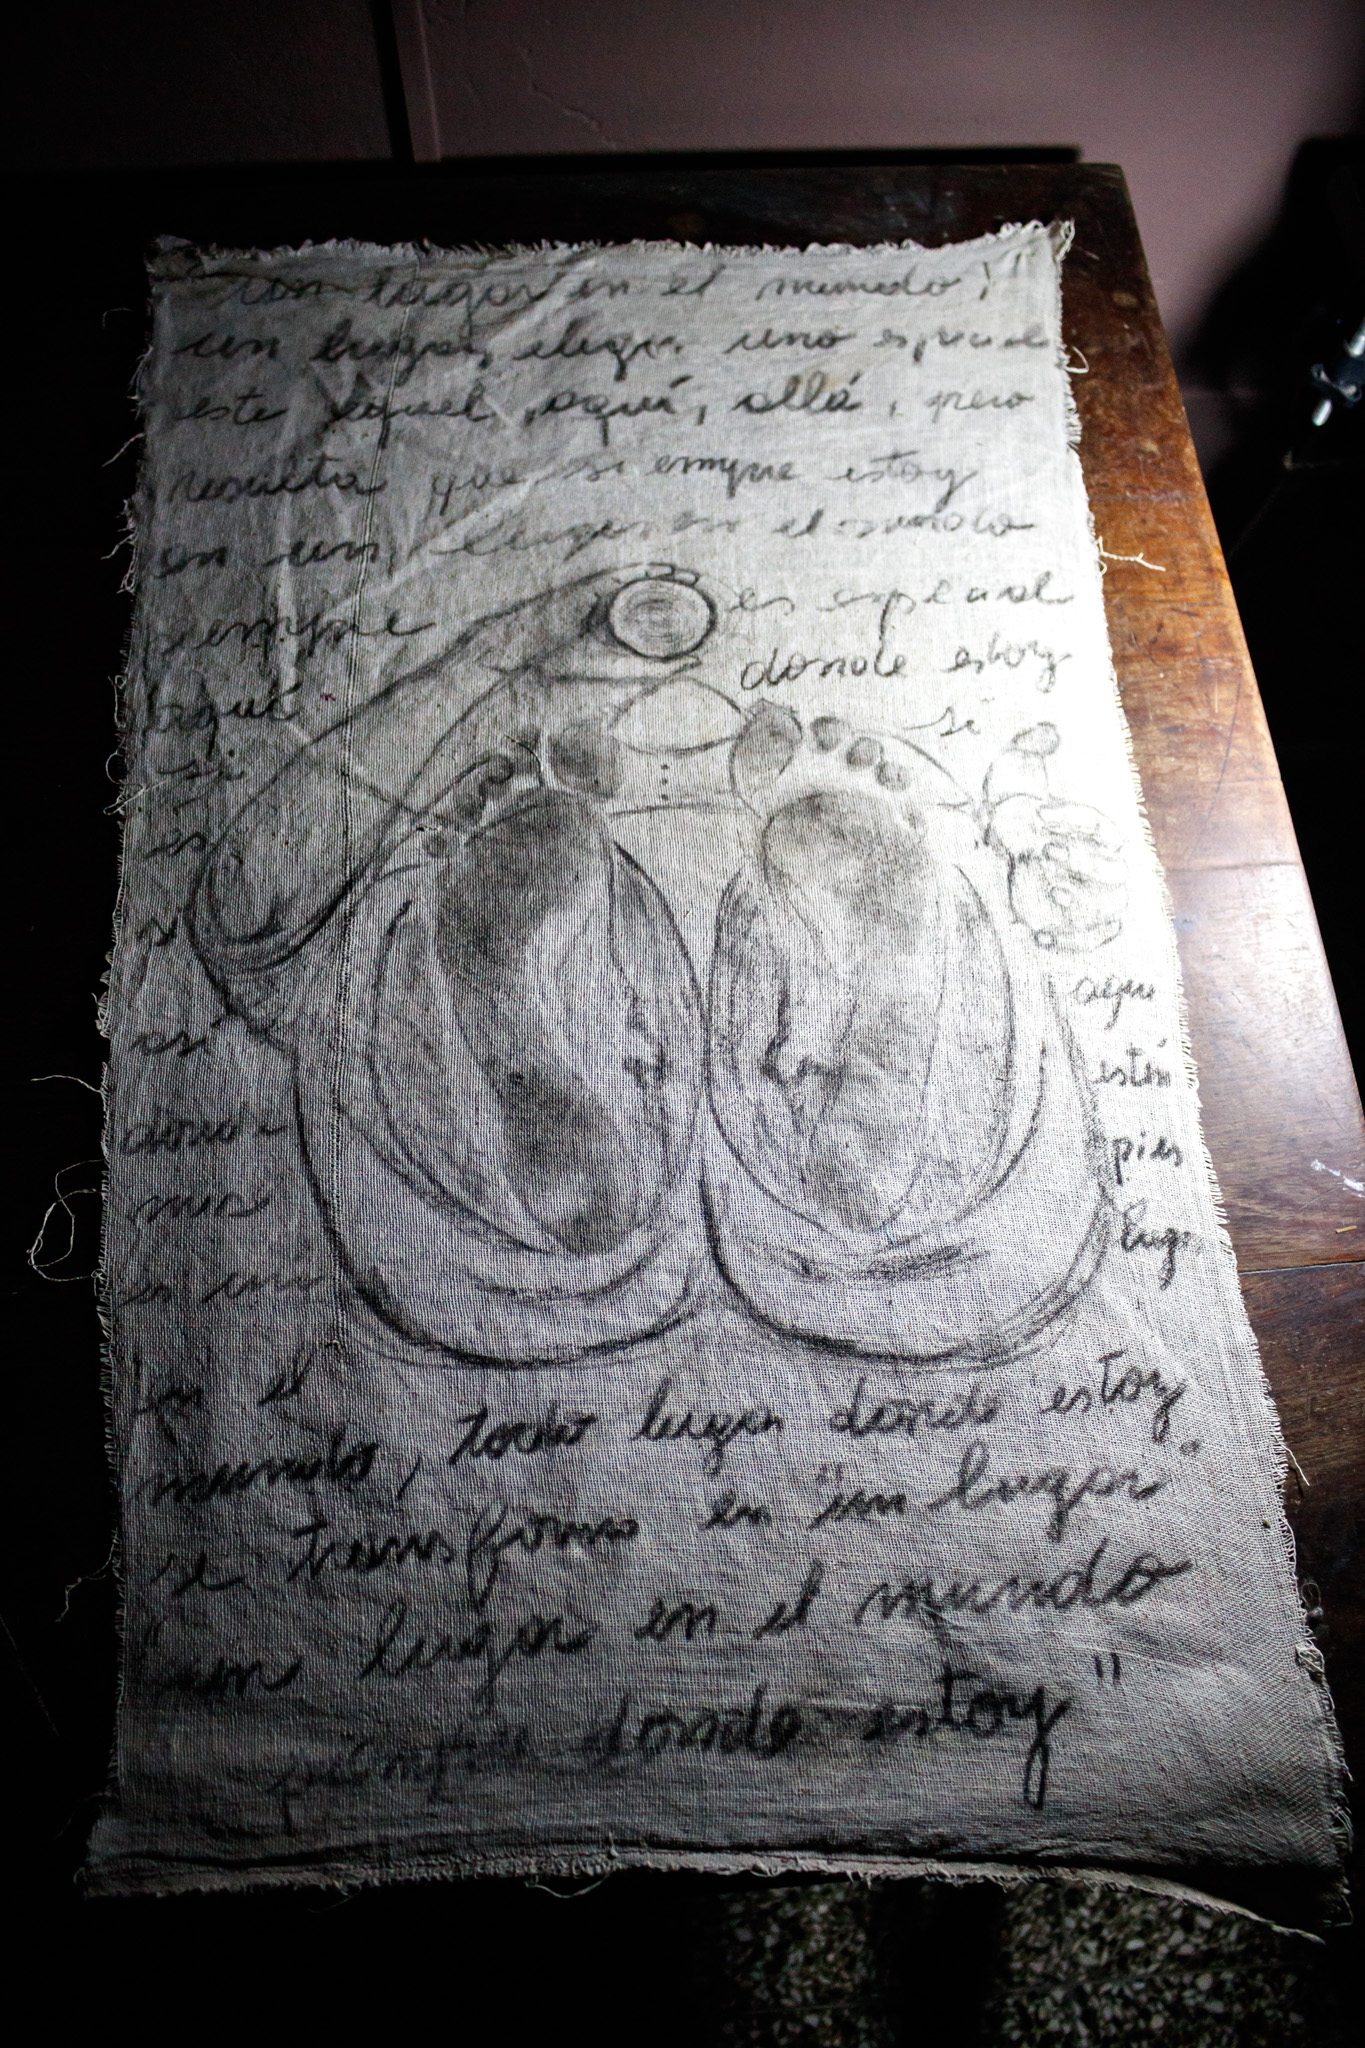 "un lugar en el mundo!"
un lugar, elegir uno especial
este aquel, aquí, allá, pero
resulta que siempre estoy
en un lugar en el mundo
siempre es especial
aquí donde estoy
si si
es
si
así aqui
donde estón
mis pies
en un lugar
en el
mundo, todo lugar donde estoy
se transforma en "un lugar"
"un lugar en el mundo
siempre donde estoy"